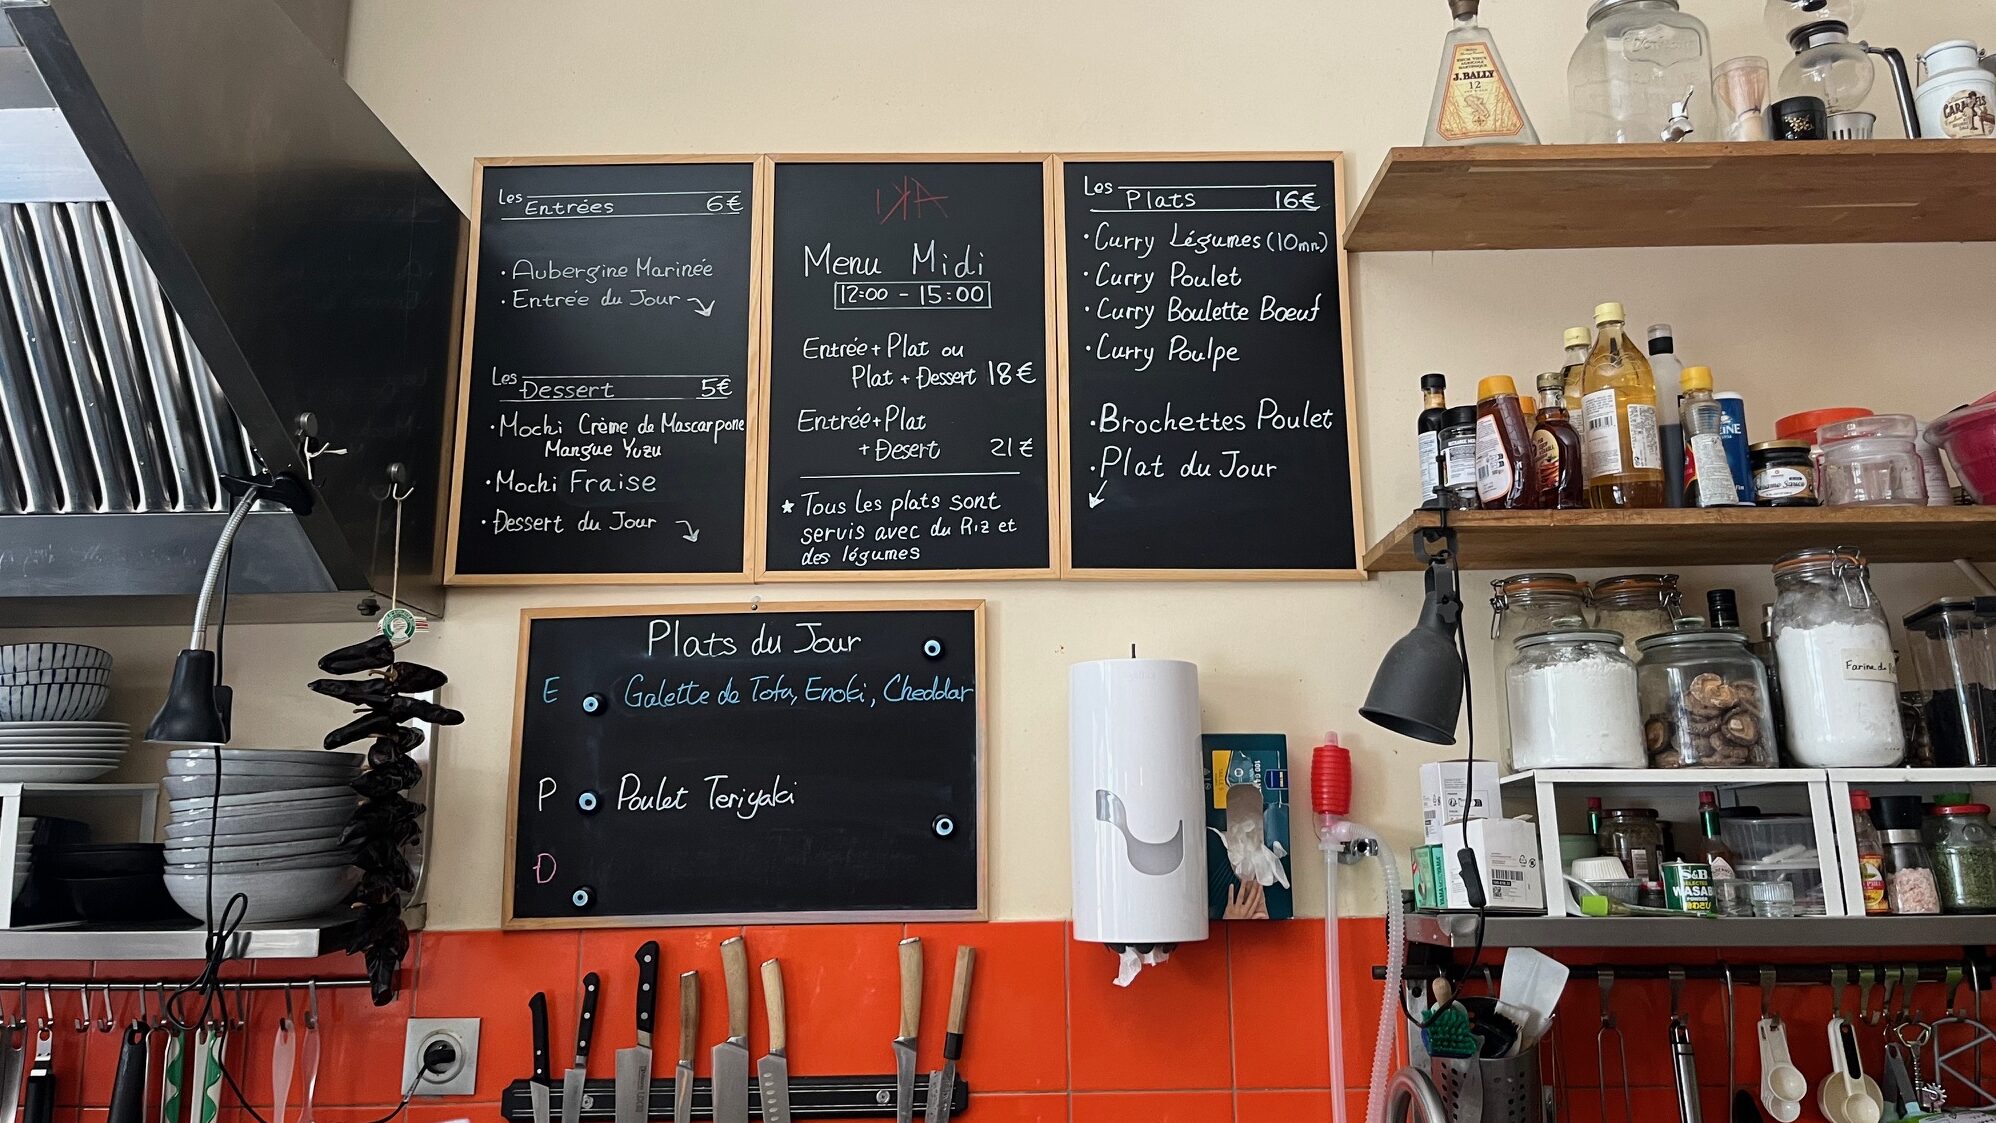 Les Entrées 6€
· Aubergine Marinée
· Entrée du Jour
Les Dessert 5€
· Mochi Crème de Mascarpone
Mangue Yuzu
· Mochi Fraise
· Dessert du Jour
IKA
Menu Midi
12:00 - 15:00
Entrée + Plat ou
Plat + Dessert 18€
Entrée + Plat
+ Desert 21€
★ Tous les plats sont
servis avec du Riz et
des légumes
Les Plats 16€
· Curry Légumes (10mn)
· Curry Poulet
· Curry Boulette Boeuf
· Curry Poulpe
· Brochettes Poulet
· Plat du Jour
Plats du Jour
E Galette de Tofu, Enoki, Cheddar
P Poulet Teriyaki
D
J. BALLY
12
Farine de
S&B
SELECTED
WASABI
POWDER